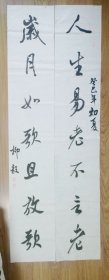 人生易老不言老
癸巳年初夏
歲月如歌且放歌
柳毅